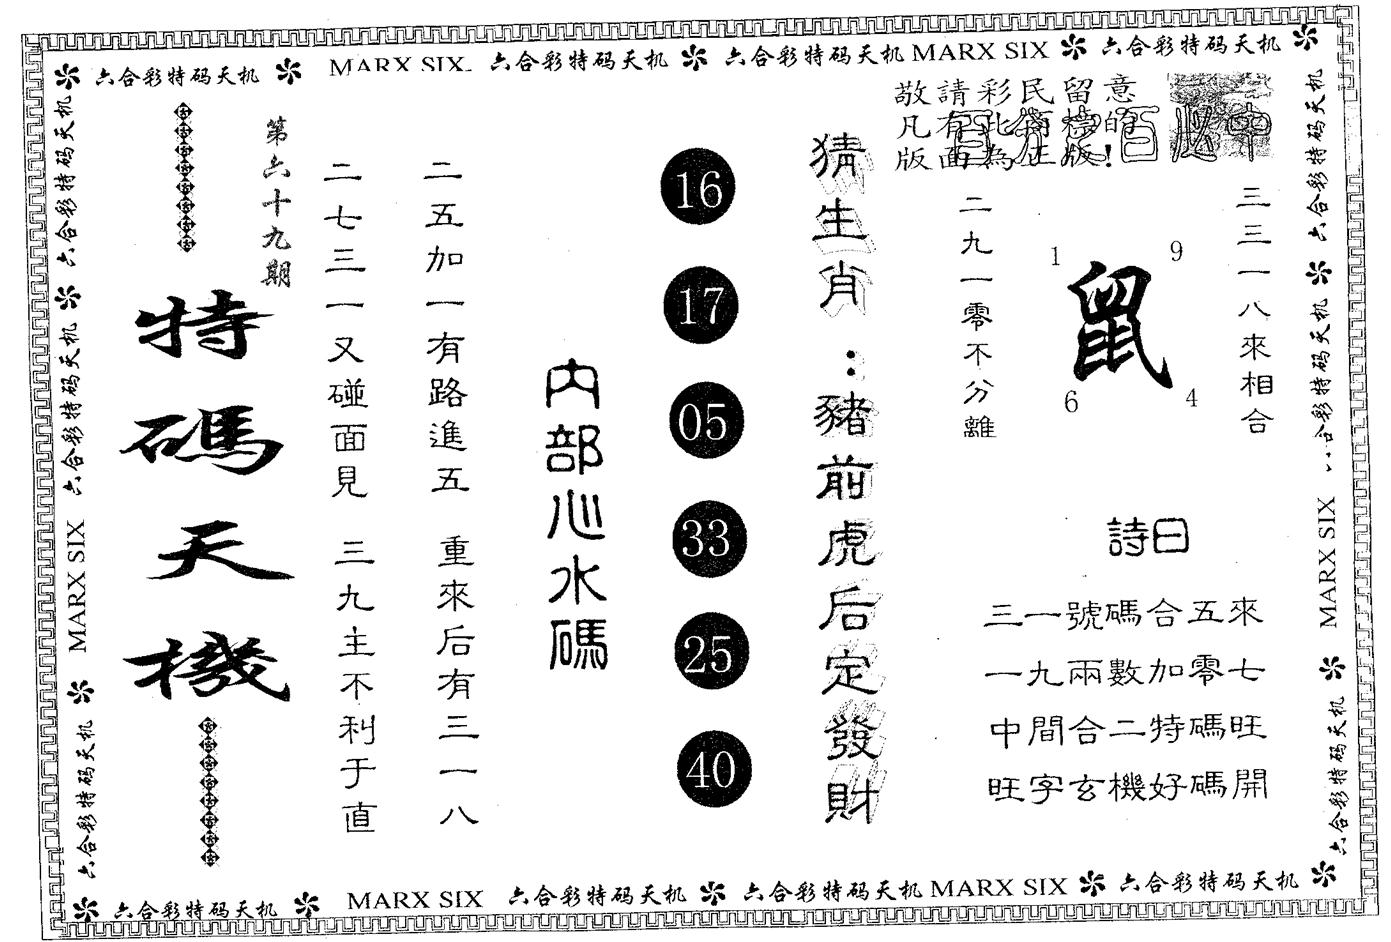 六合彩特码天机 MARX SIX 六合彩特码天机 六合彩特码天机 MARX SIX 六合彩特码天机
敬請彩民留意
凡有此商標的
版面為正版!
百分之百必中
三三一八來相合
鼠
1
9
6
4
二九一零不分離
詩曰
三一號碼合五來
一九兩數加零七
中間合二特碼旺
旺字玄機好碼開
猜生肖:豬前虎后定發財
16
17
05
33
25
40
内部心水碼
二五加一有路進五 重來后有三一八
二七三一又碰面見 三九主不利于直
第六十九期
特碼天機
六合彩特码天机
六合彩特码天机
MARX SIX
六合彩特码天机
六合彩特码天机
六合彩特码天机
MARX SIX
六合彩特码天机
六合彩特码天机 MARX SIX 六合彩特码天机 六合彩特码天机 MARX SIX 六合彩特码天机